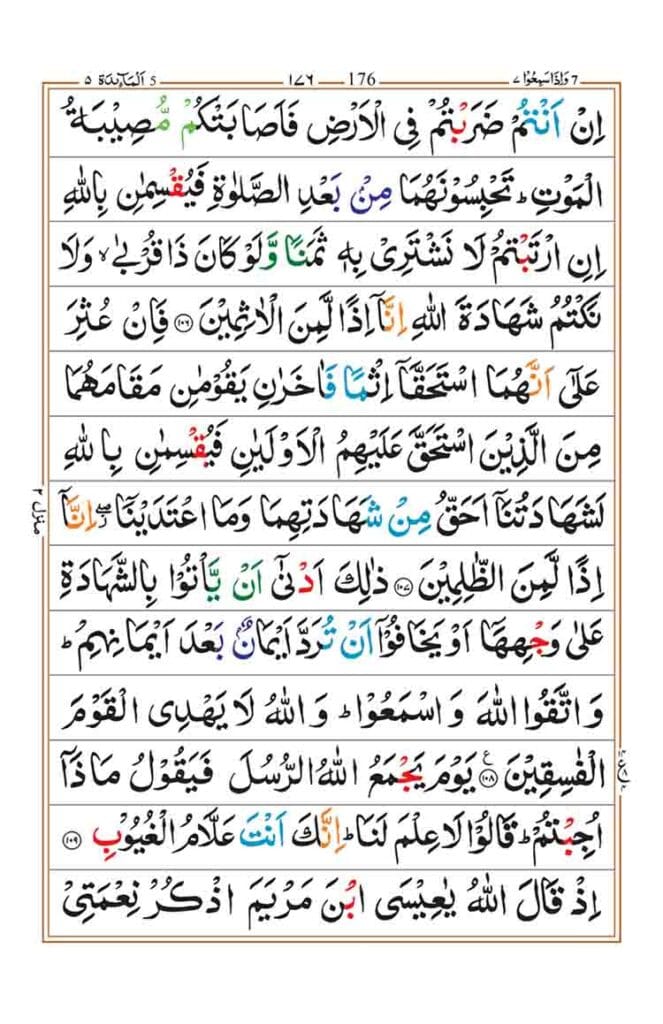 7 وَاِذَاسَمِعُوْا ٧ 176 ١٧٦ 5 اَلْمَآئِدَة ٥
اِنْ اَنْتُمْ ضَرَبْتُمْ فِى الْاَرْضِ فَاَصَابَتْكُمْ مُّصِيْبَةُ
الْمَوْتِ ؕ تَحْبِسُوْنَهُمَا مِنْۢ بَعْدِ الصَّلٰوةِ فَيُقْسِمٰنِ بِاللّٰهِ
اِنِ ارْتَبْتُمْ لَا نَشْتَرِىْ بِهٖ ثَمَنًا وَّلَوْ كَانَ ذَا قُرْبٰى ۙ وَلَا
نَكْتُمُ شَهَادَةَ اللّٰهِ اِنَّاۤ اِذًا لَّمِنَ الْاٰثِمِيْنَ ۝١٠٦ فَاِنْ عُثِرَ
عَلٰٓى اَنَّهُمَا اسْتَحَقَّاۤ اِثْمًا فَاٰخَرٰنِ يَقُوْمٰنِ مَقَامَهُمَا
مِنَ الَّذِيْنَ اسْتَحَقَّ عَلَيْهِمُ الْاَوْلَيٰنِ فَيُقْسِمٰنِ بِاللّٰهِ
لَشَهَادَتُنَاۤ اَحَقُّ مِنْ شَهَادَتِهِمَا وَمَا اعْتَدَيْنَاۤ ۖ اِنَّاۤ
اِذًا لَّمِنَ الظّٰلِمِيْنَ ۝١٠٧ ذٰلِكَ اَدْنٰٓى اَنْ يَّاْتُوْا بِالشَّهَادَةِ
عَلٰى وَجْهِهَاۤ اَوْ يَخَافُوْۤا اَنْ تُرَدَّ اَيْمَانٌۢ بَعْدَ اَيْمَانِهِمْ ؕ
وَاتَّقُوا اللّٰهَ وَاسْمَعُوْا ؕ وَاللّٰهُ لَا يَهْدِى الْقَوْمَ
الْفٰسِقِيْنَ ۝١٠٨ ع يَوْمَ يَجْمَعُ اللّٰهُ الرُّسُلَ فَيَقُوْلُ مَاذَاۤ
اُجِبْتُمْ ؕ قَالُوْا لَا عِلْمَ لَنَا ؕ اِنَّكَ اَنْتَ عَلَّامُ الْغُيُوْبِ ۝١٠٩
اِذْ قَالَ اللّٰهُ يٰعِيْسَى ابْنَ مَرْيَمَ اذْكُرْ نِعْمَتِىْ
منزل ٢